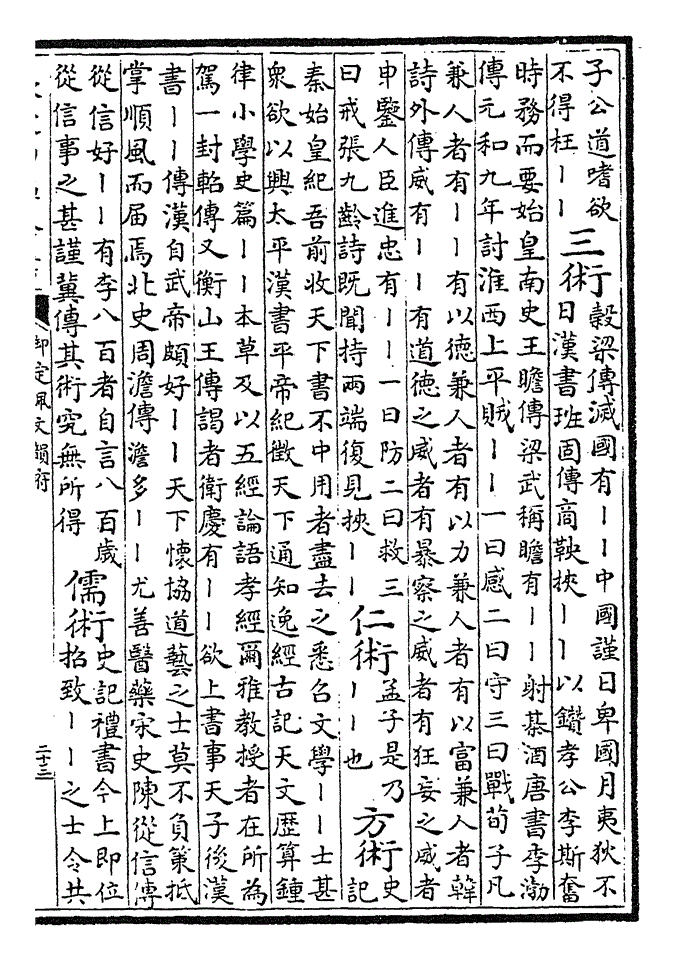 子公道嗜欲
不得枉丨丨
三術
穀梁傳滅國有丨丨中國謹日卑國月夷狄不
日漢書班固傳商鞅挾丨丨以鑽孝公李斯奮
時務而要始皇南史王瞻傳梁武稱瞻有丨丨射棊酒唐書李渤
傳元和九年討淮西上平賊丨丨一曰感二曰守三曰戰荀子凡
兼人者有丨丨有以德兼人者有以力兼人者有以富兼人者韓
詩外傳威有丨丨有道德之威者有暴察之威者有狂妄之威者
申鑒人臣進忠有丨丨一曰防二曰救三
曰戒張九齡詩既聞持兩端復見挾丨丨
仁術
孟子是乃
丨丨也
方術
史
記
秦始皇紀吾前收天下書不中用者盡去之悉召文學丨丨士甚
衆欲以興太平漢書平帝紀徵天下通知逸經古記天文歷算鍾
律小學史篇丨丨本草及以五經論語孝經爾雅教授者在所為
駕一封軺傳又衡山王傳謁者衛慶有丨丨欲上書事天子後漢
書丨丨傳漢自武帝頗好丨丨天下懷協道藝之士莫不負策抵
掌順風而屆焉北史周澹傳澹多丨丨尤善醫藥宋史陳從信傳
從信好丨丨有李八百者自言八百歲
從信事之甚謹冀傳其術究無所得
儒術
史記禮書今上即位
招致丨丨之士令共
御定佩文韻府
二十三